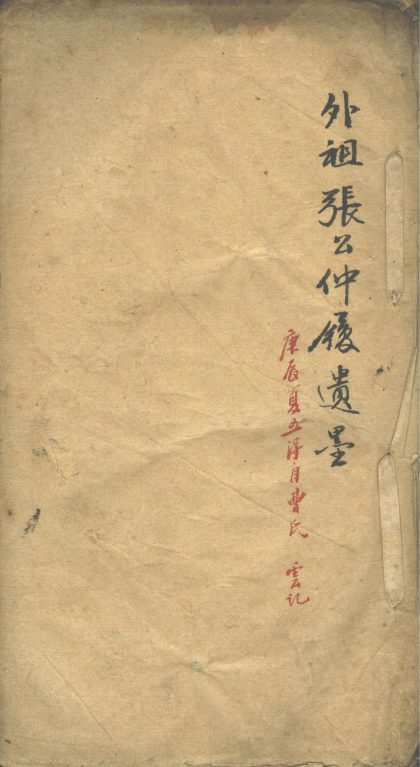 外祖張公仲履遺墨
庚辰夏五得自曹氏 雲記